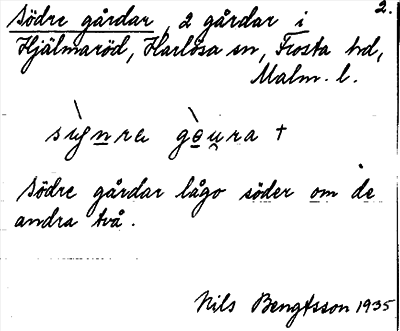 2.
Södre gårdar, 2 gårdar i
Hjälmaröd, Harlösa sn, Frosta hd,
Malm. l.
sìgnra gèura +
Södre gårdar lågo söder om de
andra två.
Nils Bengtsson 1935